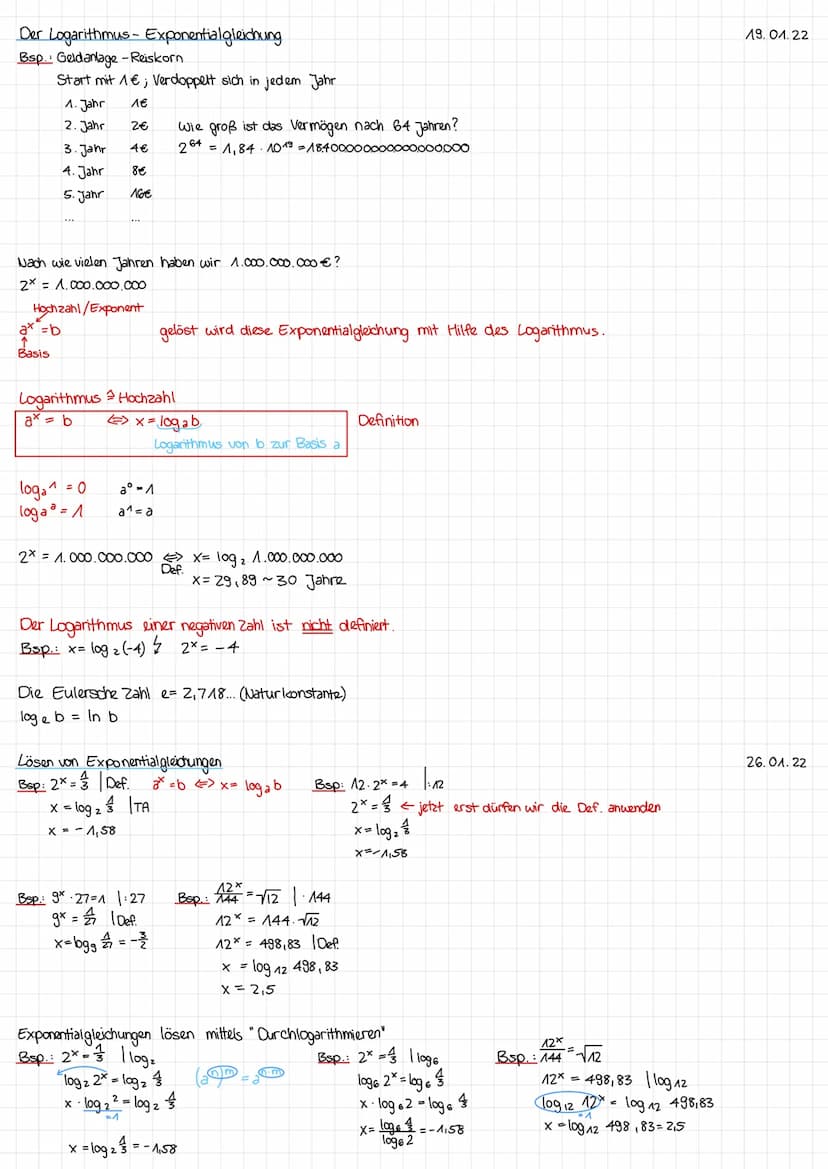 Der Logarithmus - Exponentialgleichung 19.01.22
Bsp.: Geldanlage - Reiskorn
Start mit 1€; Verdoppelt sich in jedem Jahr
1. Jahr 1€
2. Jahr 2€ Wie groß ist das Vermögen nach 64 Jahren?
3. Jahr 4€ 2^64 = 1,84 · 10^19 = 18400000000000000000
4. Jahr 8€
5. Jahr 16€
... ...
Nach wie vielen Jahren haben wir 1.000.000.000€?
2^x = 1.000.000.000
Hochzahl/Exponent
a^x = b gelöst wird diese Exponentialgleichung mit Hilfe des Logarithmus.
Basis
Logarithmus ≙ Hochzahl
a^x = b ⇔ x = log_a b Definition
Logarithmus von b zur Basis a
log_a 1 = 0 a^0 = 1
log_a a = 1 a^1 = a
2^x = 1.000.000.000 ⇔ x = log_2 1.000.000.000
Def.
x = 29,89 ~ 30 Jahre
Der Logarithmus einer negativen Zahl ist nicht definiert.
Bsp.: x = log_2 (-4) ↯ 2^x = -4
Die Eulersche Zahl e = 2,718... (Naturkonstante)
log_e b = ln b
Lösen von Exponentialgleichungen 26.01.22
Bsp: 2^x = 1/3 | Def. a^x = b ⇔ x = log_a b Bsp: 12 · 2^x = 4 | :12
x = log_2 1/3 | TA 2^x = 1/3 ← jetzt erst dürfen wir die Def. anwenden
x = -1,58 x = log_2 1/3
x = -1,58
Bsp.: 9^x · 27 = 1 | :27 Bsp.: 12^x/144 = √12 | · 144
9^x = 1/27 | Def. 12^x = 144 · √12
x = log_9 1/27 = -3/2 12^x = 498,83 | Def.
x = log_12 498,83
x = 2,5
Exponentialgleichungen lösen mittels "Durchlogarithmieren"
Bsp.: 2^x = 1/3 | log_2 Bsp.: 2^x = 1/3 | log_6 Bsp.: 12^x/144 = √12
log_2 2^x = log_2 1/3 (a^n)^m = a^n·m log_6 2^x = log_6 1/3 12^x = 498,83 | log_12
x · log_2 2 = log_2 1/3 x · log_6 2 = log_6 1/3 log_12 12^x = log_12 498,83
=1 =1
x = log_2 1/3 = -1,58 x = log_6 1/3 / log_6 2 = -1,58 x = log_12 498,83 = 2,5